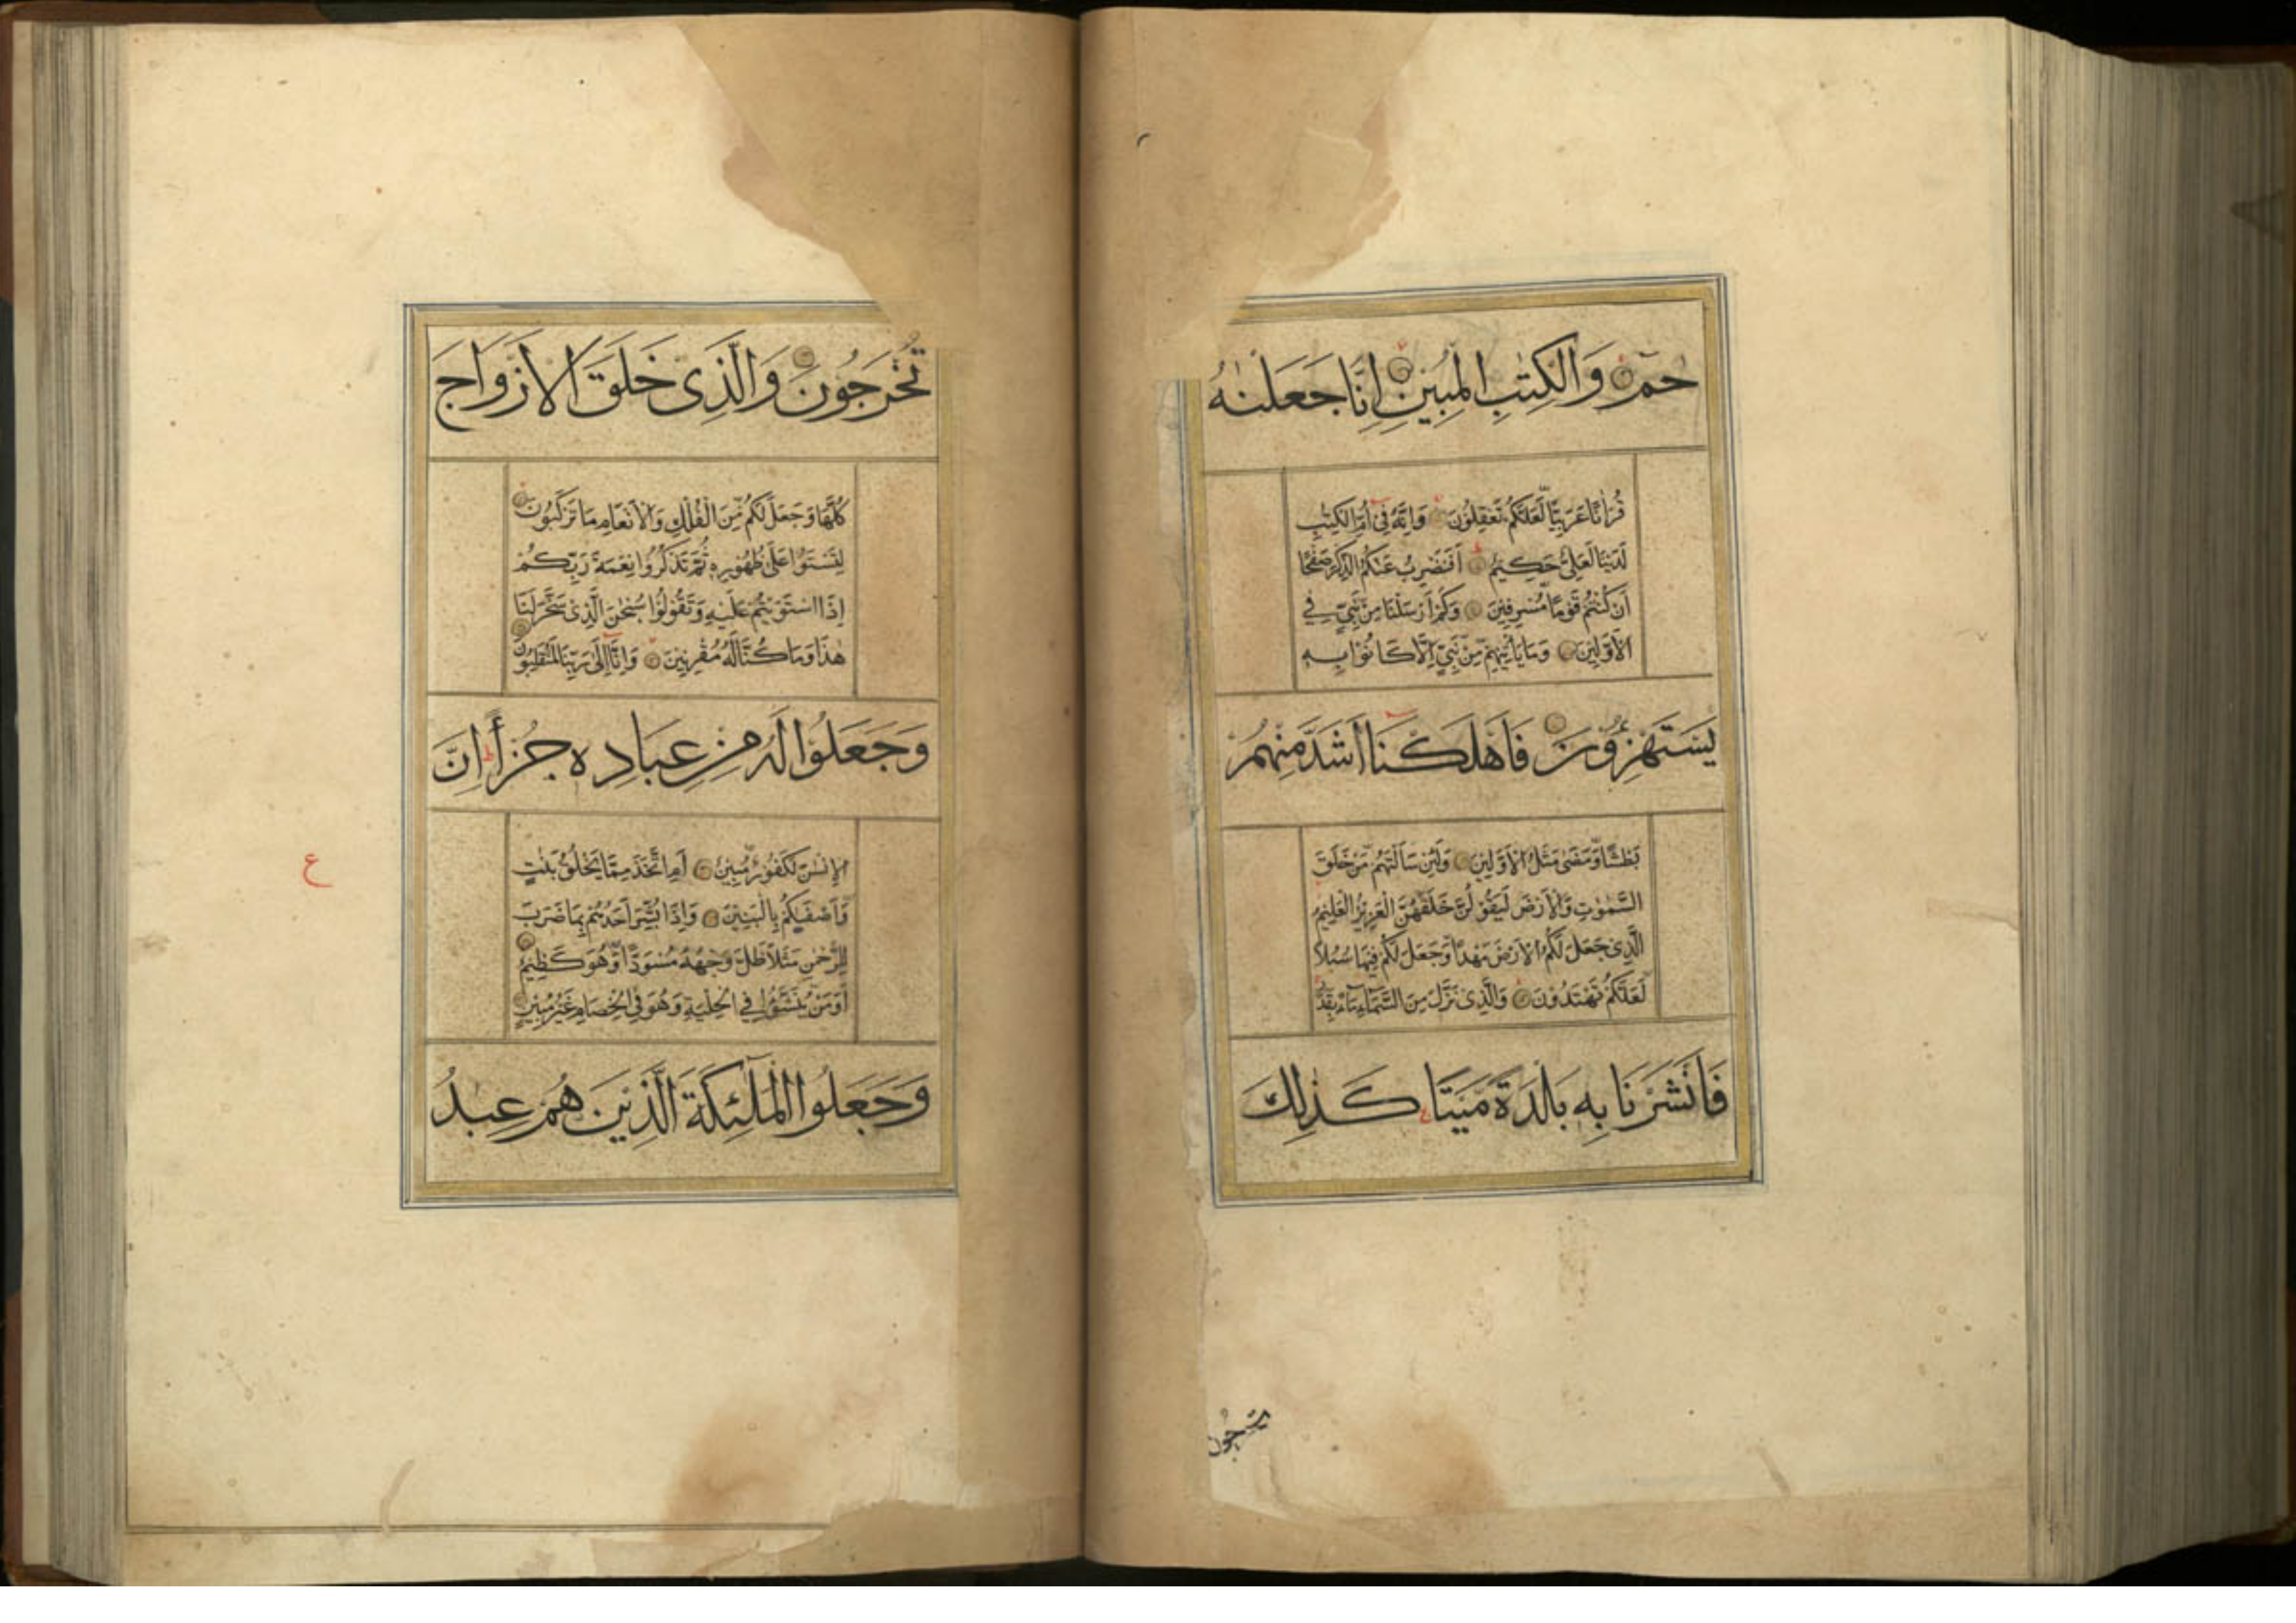 حٰمٓ وَالْكِتٰبِ الْمُبِيْنِ اِنَّا جَعَلْنٰهُ
قُرْاٰنًا عَرَبِيًّا لَعَلَّكُمْ تَعْقِلُوْنَ وَاِنَّهٗ فِيْ اُمِّ الْكِتٰبِ
لَدَيْنَا لَعَلِيٌّ حَكِيْمٌ اَفَنَضْرِبُ عَنْكُمُ الذِّكْرَ صَفْحًا
اَنْ كُنْتُمْ قَوْمًا مُّسْرِفِيْنَ وَكَمْ اَرْسَلْنَا مِنْ نَّبِيٍّ فِي
الْاَوَّلِيْنَ وَمَا يَاْتِيْهِمْ مِّنْ نَّبِيٍّ اِلَّا كَانُوْا بِهٖ
يَسْتَهْزِءُوْنَ فَاَهْلَكْنَا اَشَدَّ مِنْهُمْ
بَطْشًا وَّمَضٰى مَثَلُ الْاَوَّلِيْنَ وَلَئِنْ سَاَلْتَهُمْ مَّنْ خَلَقَ
السَّمٰوٰتِ وَالْاَرْضَ لَيَقُوْلُنَّ خَلَقَهُنَّ الْعَزِيْزُ الْعَلِيْمُ
الَّذِيْ جَعَلَ لَكُمُ الْاَرْضَ مَهْدًا وَّجَعَلَ لَكُمْ فِيْهَا سُبُلًا
لَّعَلَّكُمْ تَهْتَدُوْنَ وَالَّذِيْ نَزَّلَ مِنَ السَّمَآءِ مَآءً بِقَدَرٍ
فَاَنْشَرْنَا بِهٖ بَلْدَةً مَّيْتًا كَذٰلِكَ
تُخْرَجُوْنَ وَالَّذِيْ خَلَقَ الْاَزْوَاجَ
كُلَّهَا وَجَعَلَ لَكُمْ مِّنَ الْفُلْكِ وَالْاَنْعَامِ مَا تَرْكَبُوْنَ
لِتَسْتَوٗا عَلٰى ظُهُوْرِهٖ ثُمَّ تَذْكُرُوْا نِعْمَةَ رَبِّكُمْ
اِذَا اسْتَوَيْتُمْ عَلَيْهِ وَتَقُوْلُوْا سُبْحٰنَ الَّذِيْ سَخَّرَ لَنَا
هٰذَا وَمَا كُنَّا لَهٗ مُقْرِنِيْنَ وَاِنَّا اِلٰى رَبِّنَا لَمُنْقَلِبُوْنَ
وَجَعَلُوْا لَهٗ مِنْ عِبَادِهٖ جُزْأً اِنَّ
الْاِنْسَانَ لَكَفُوْرٌ مُّبِيْنٌ اَمِ اتَّخَذَ مِمَّا يَخْلُقُ بَنٰتٍ
وَّاَصْفٰىكُمْ بِالْبَنِيْنَ وَاِذَا بُشِّرَ اَحَدُهُمْ بِمَا ضَرَبَ
لِلرَّحْمٰنِ مَثَلًا ظَلَّ وَجْهُهٗ مُسْوَدًّا وَّهُوَ كَظِيْمٌ
اَوَمَنْ يُّنَشَّؤُا فِي الْحِلْيَةِ وَهُوَ فِي الْخِصَامِ غَيْرُ مُبِيْنٍ
وَجَعَلُوا الْمَلٰٓئِكَةَ الَّذِيْنَ هُمْ عِبٰدُ
ع